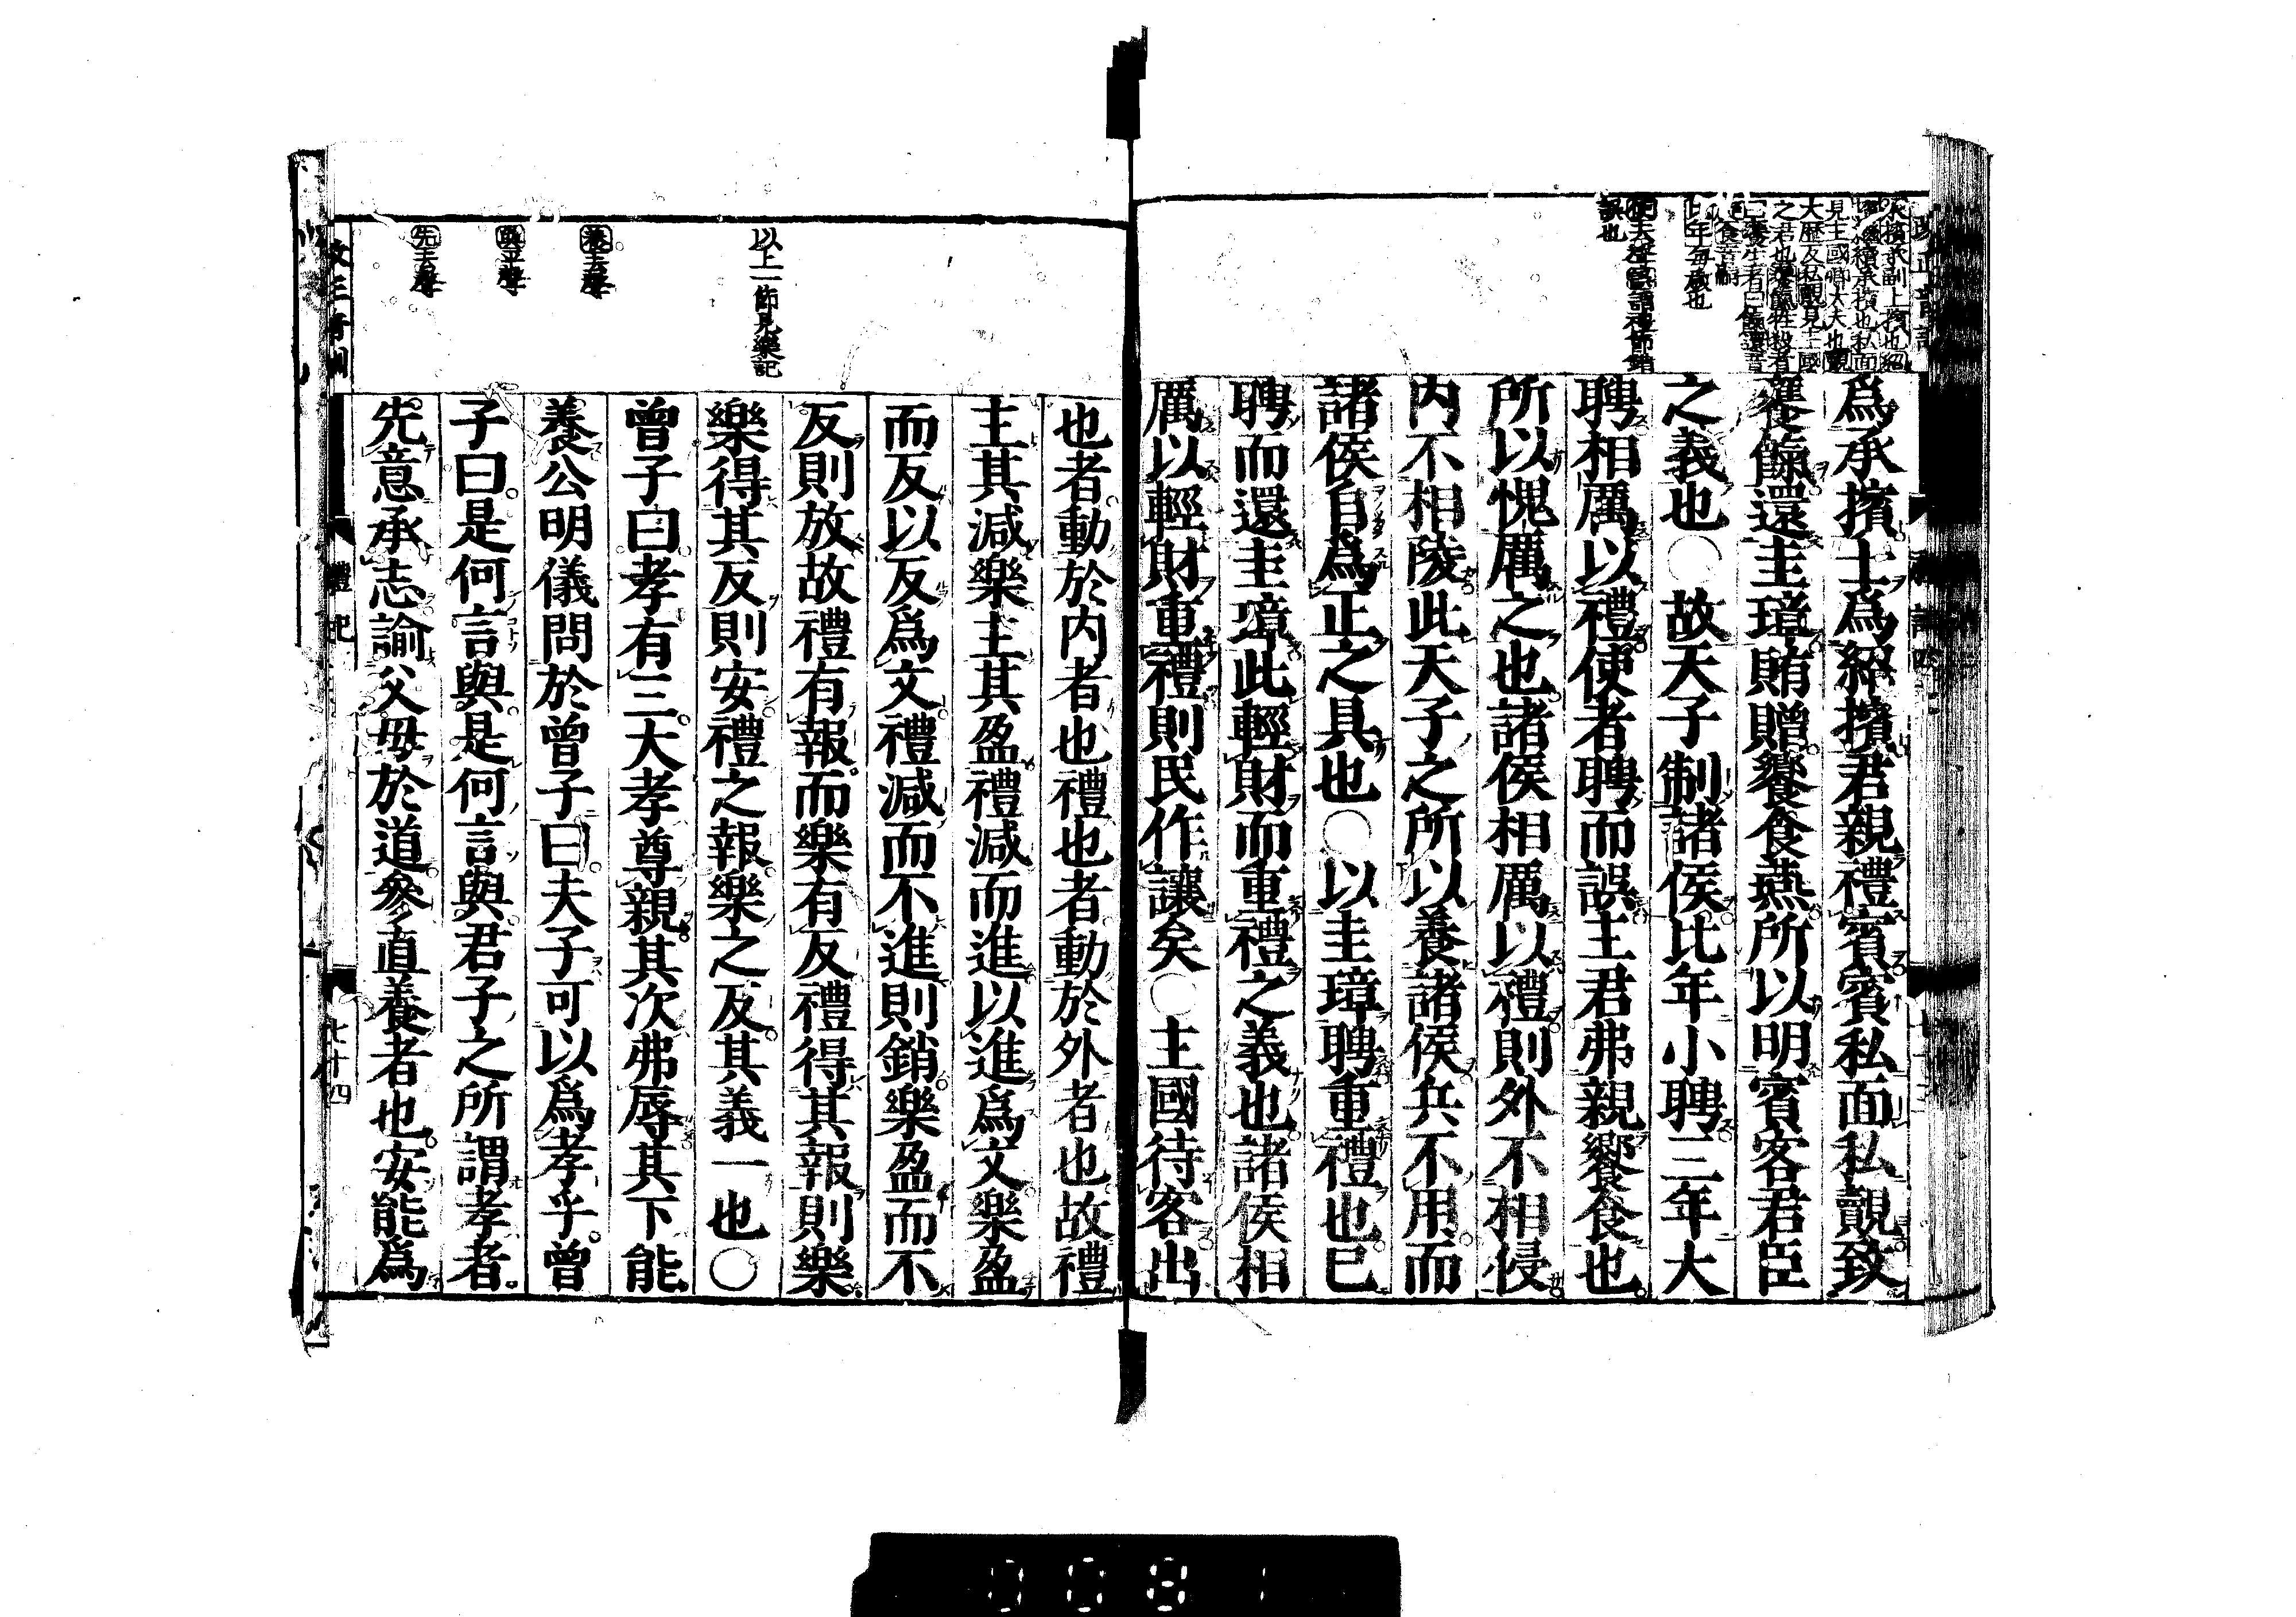 爲承擯士爲紹擯君親禮賓賓私面私覿致
饔餼還圭璋賄贈饗食燕所以明賓客君臣
之義也○故天子制諸侯比年小聘三年大
聘相厲以禮使者聘而誤主君弗親饗食也
所以愧厲之也諸侯相厲以禮則外不相侵
内不相陵此天子之所以養諸侯兵不用而
諸侯自爲正之具也○以圭璋聘重禮也已
聘而還圭璋此輕財而重禮之義也諸侯相
厲以輕財重禮則民作讓矣○主國待客出
以上一節見樂記
養去聲
與平聲
先去聲
也者動於内者也禮也者動於外者也故禮
主其減樂主其盈禮減而進以進爲文樂盈
而反以反爲文禮減而不進則銷樂盈而不
反則放故禮有報而樂有反禮得其報則樂
樂得其反則安禮之報樂之反其義一也○
曾子曰孝有三大孝尊親其次弗辱其下能
養公明儀問於曾子曰夫子可以爲孝乎曾
子曰是何言與是何言與君子之所謂孝者
先意承志諭父母於道參直養者也安能爲
禮記
七十四
0081